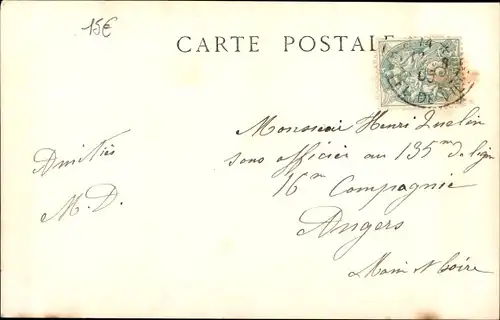 15€
CARTE POSTALE
Amitiés
M. D.
Monsieur Henri Quelin
sous officier au 135me de ligne
16me Compagnie
Angers
Maine et Loire